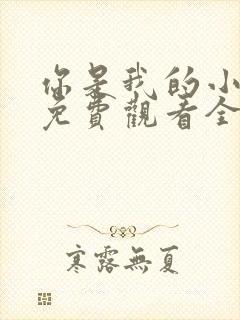 你是我的小
免費觀看全
寒露無夏